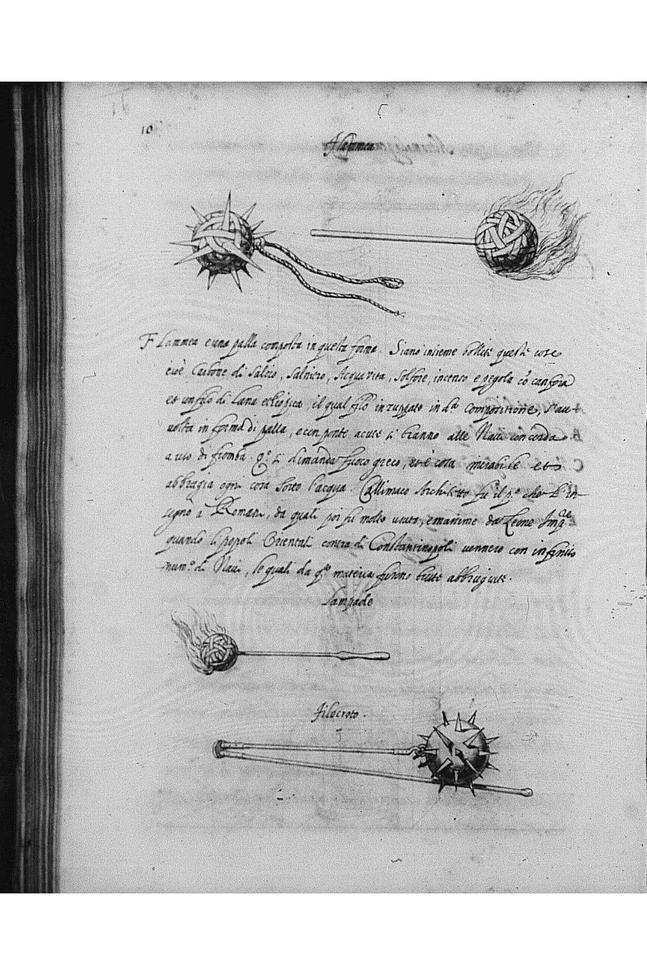 10
Flammea
Flammea e una palla composta in questa forma. Siano insieme bolliti queste cose
cioè Carbone di Salcio, Salnitro, Acqua vita, Solfore, incenso e pegola cō canfora
et un filo di lana etiopica, il qual filo inzuppato in dᵃ compositione, s'au
volta in forma di palla, e con ponte acute si tranno alle Naui con corda
a uso di fromba. Qᵒ si dimanda fuoco greco, et è cosa mirabile et
abbrugia ogni cosa sotto l'acqua. Callimaco Architetto fu il pᵒ che l'in
segnò a Romani, da quali poi fu molto usata, e massime da Leone Impʳᵉ
quando li popoli Orientali contra di Constantinopoli uennero con infinito
numᵒ di Naui, le quali da qᵗᵃ materia furono tutte abbrugiate.
Lampade
Filocroto.